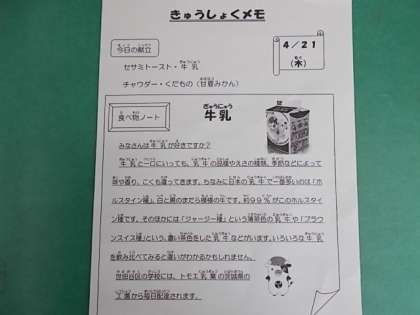 きゅうしょくメモ
今日の献立
4／21
（木）
セサミトースト・牛乳
チャウダー・くだもの（甘夏みかん）
食べ物ノート
ぎゅうにゅう
牛乳
みなさんは牛乳が好きですか？
牛乳と一口にいっても、乳牛の品種やえさの種類、季節などによって
味や香り、こくも違ってきます。ちなみに日本の乳牛で一番多いのは「ホル
スタイン種」。白と黒のまだら模様の牛です。約99％がこのホルス
タイン種です。そのほかには「ジャージー種」という薄茶色の乳牛や「ブラウ
ンスイス種」という、濃い茶色をした乳牛などがいます。いろいろな牛乳
を飲み比べてみると違いがわかるかもしれません。
世田谷区の学校には、トモエ乳業の茨城県の
工場から毎日配達されます。